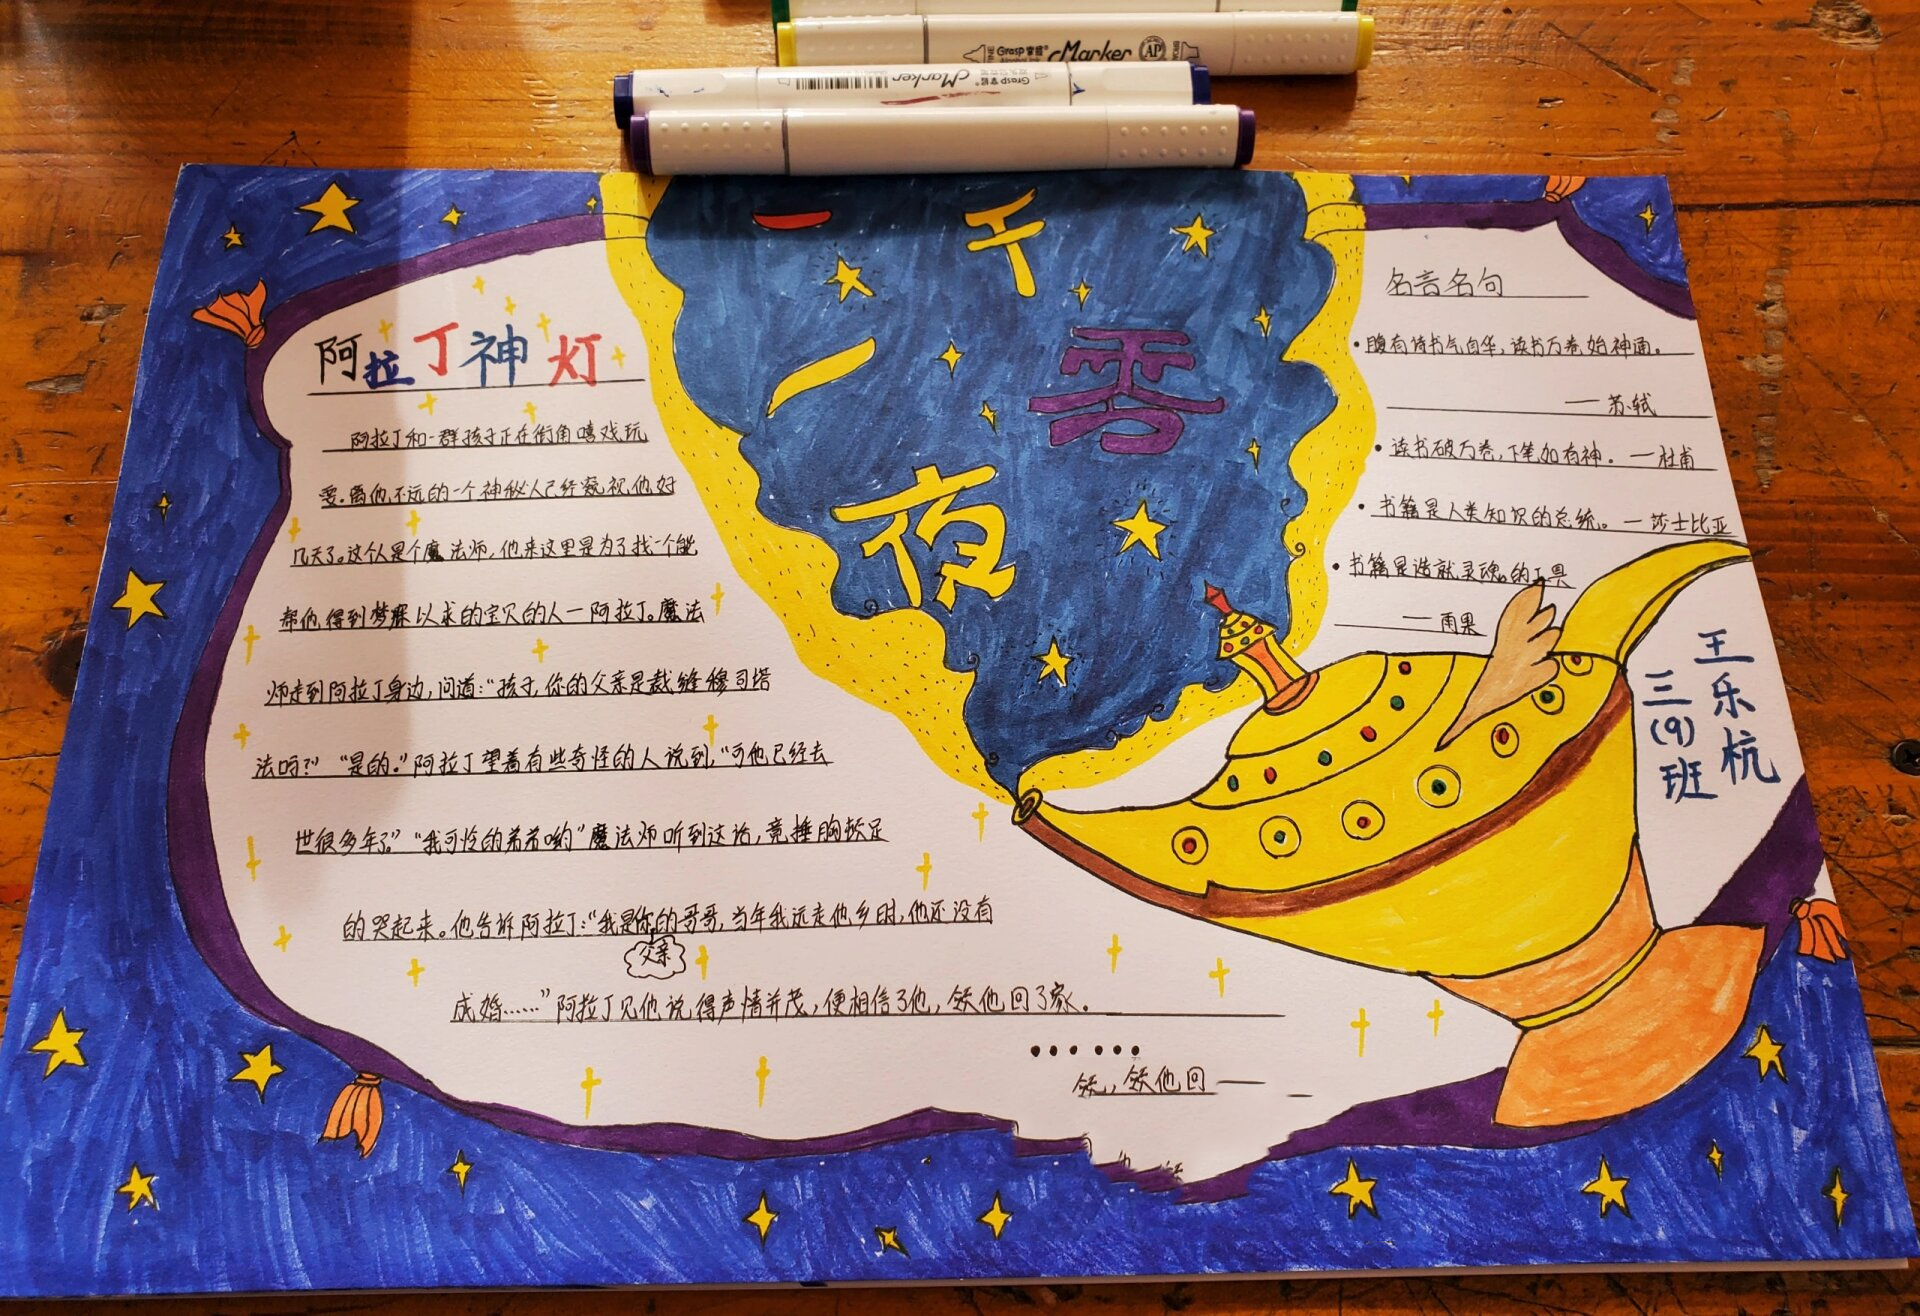 Grasp 掌握 Marker AP
Grasp 掌握 Marker
一千
零
一
夜
阿拉丁神灯
阿拉丁和一群孩子正在街角嘻戏玩
耍。离他不远的一个神秘人已经窥视他好
几天了。这个人是个魔法师,他来这里是为了找一个能
帮他得到梦寐以求的宝贝的人一阿拉丁。魔法
师走到阿拉丁身边,问道:“孩子,你的父亲是裁缝穆司塔
法吗?”“是的。”阿拉丁望着有些奇怪的人说到,“可他已经去
世很多年了。”“我可怜的弟弟哟”魔法师听到这话,竟捶胸顿足
的哭起来。他告诉阿拉丁:“我是你的哥哥,当年我远走他乡时,他还没有
父亲
成婚……”阿拉丁见他说得声情并茂,便相信了他,领他回了家。
……
领,领他回一
名言名句
• 腹有诗书气自华,读书万卷始神通。
— 苏轼
• 读书破万卷,下笔如有神。—杜甫
• 书籍是人类知识的总统。—莎士比亚
• 书籍是造就灵魂的工具
— 雨果
王乐杭
三(9)班